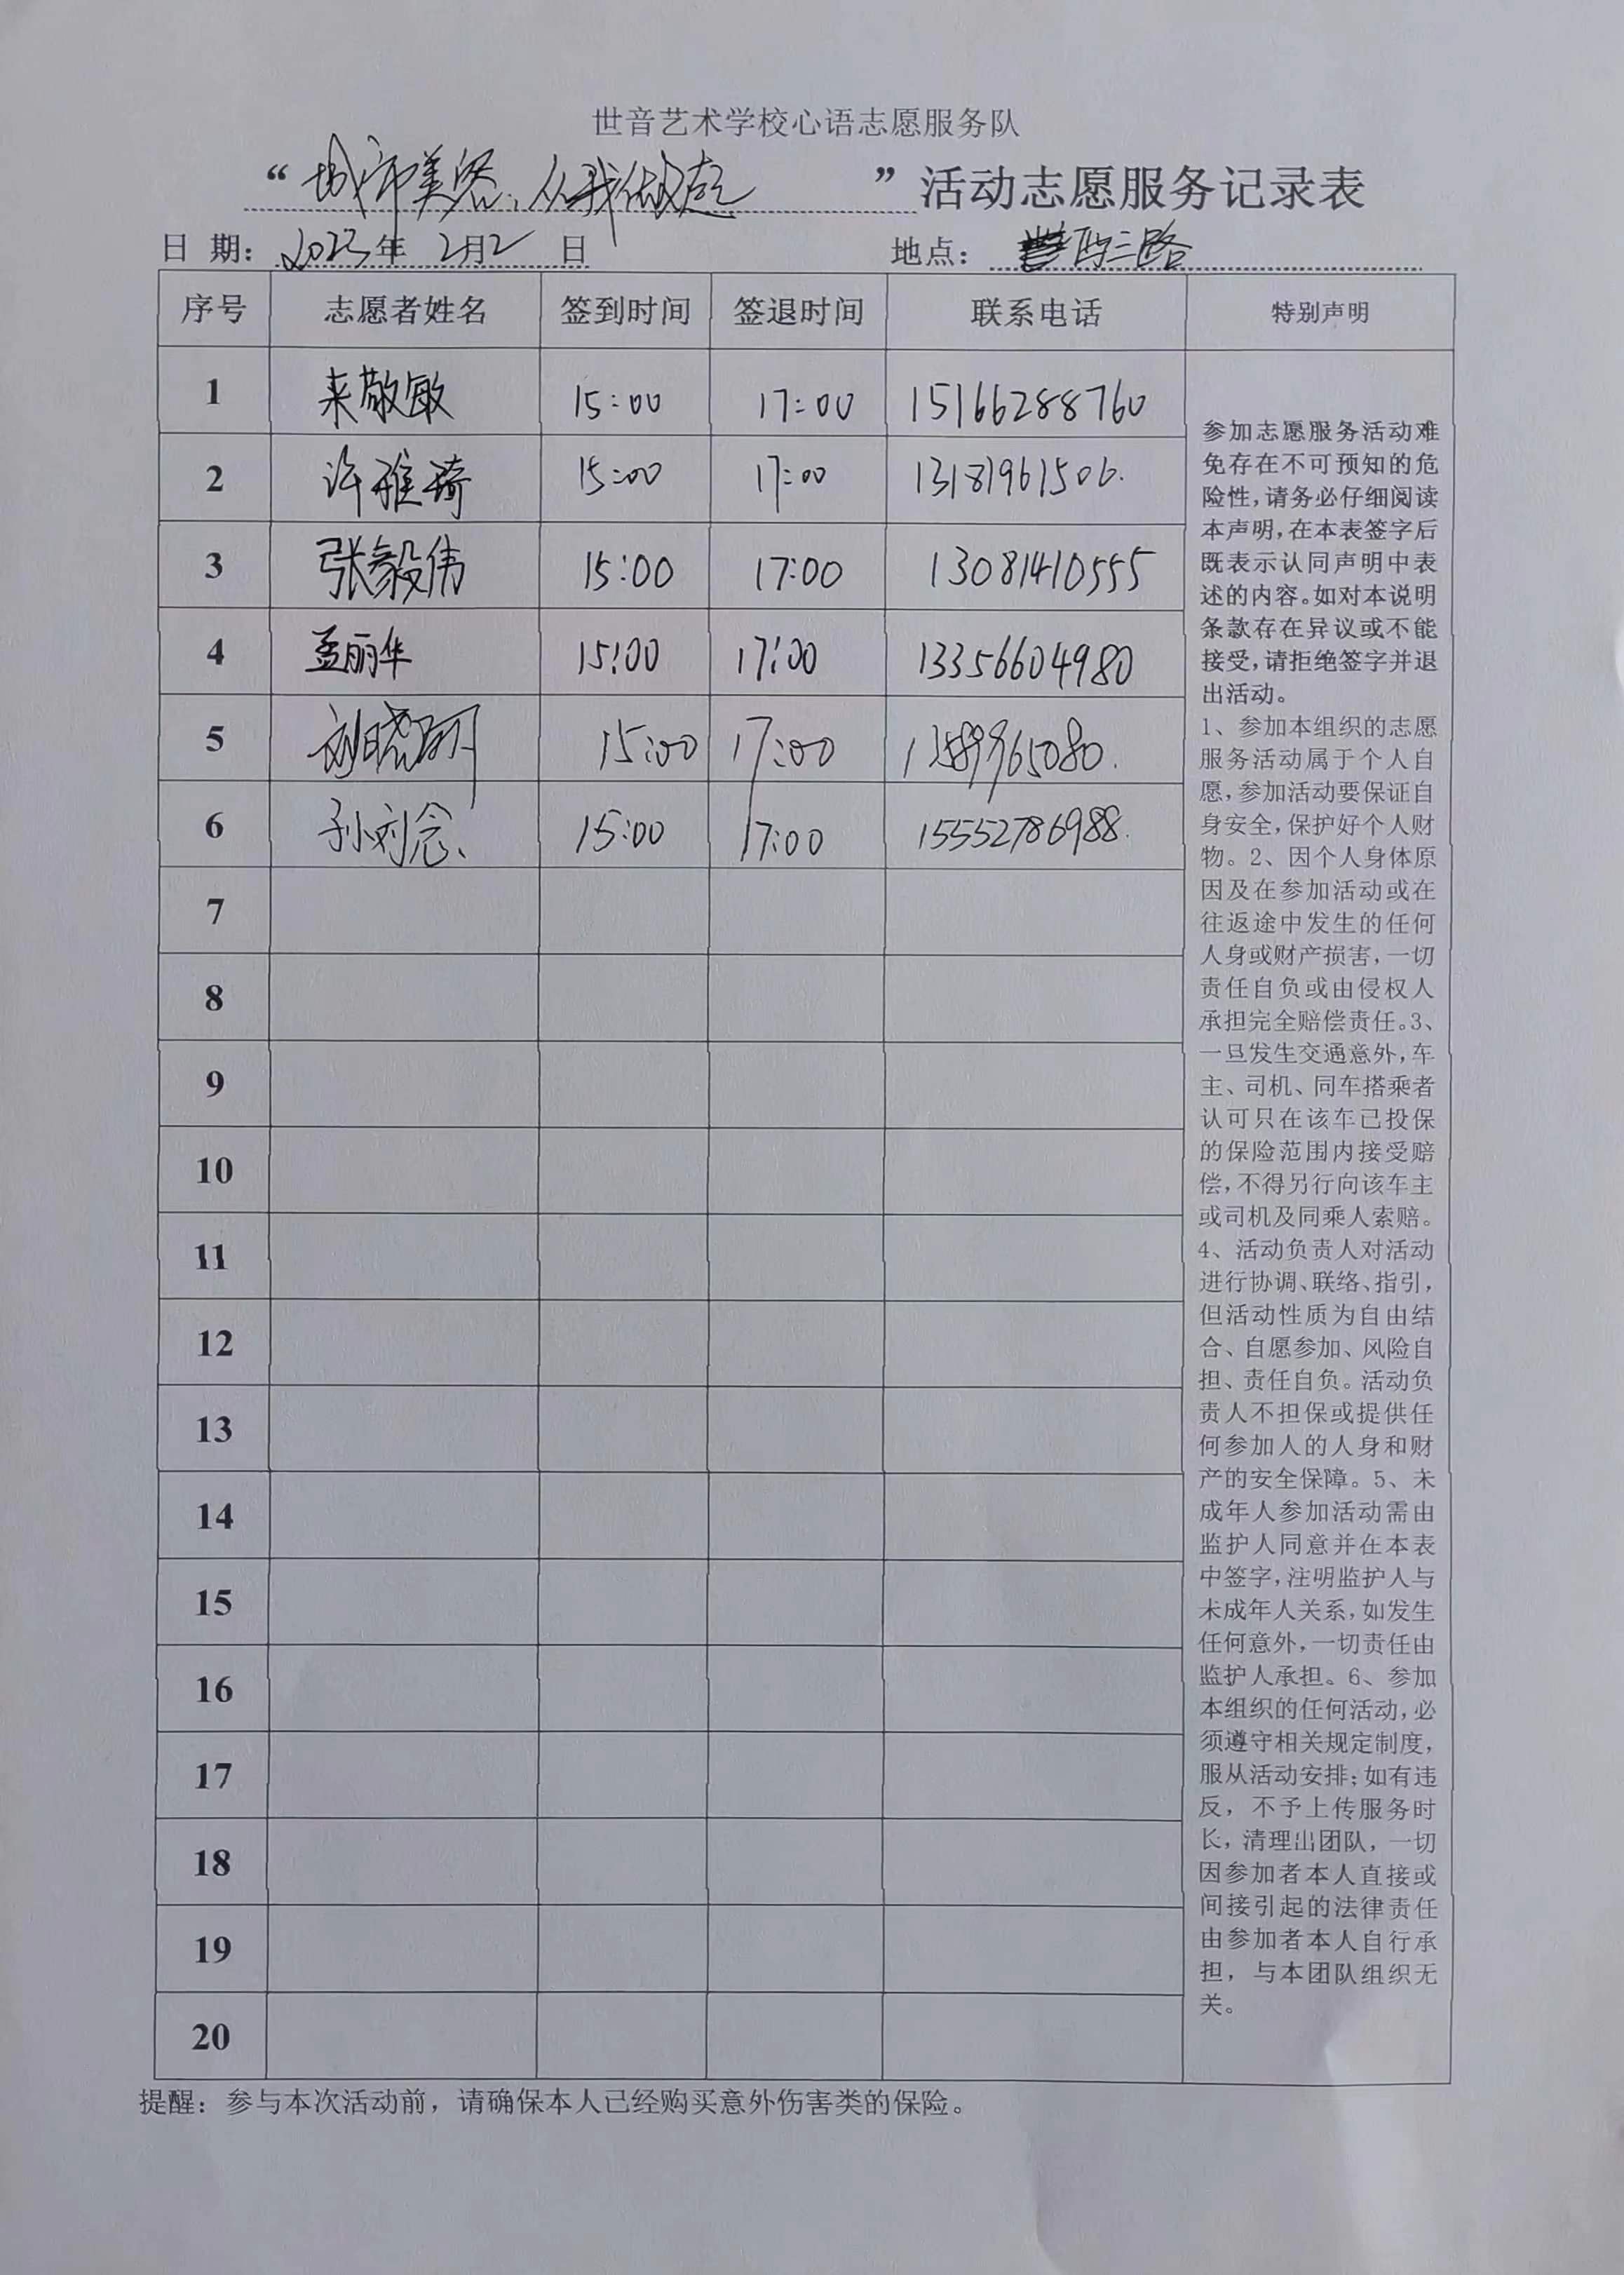 世音艺术学校心语志愿服务队
“城市美容,从我做起”活动志愿服务记录表
日 期: 2023年 2月2日 地点: 西三路
序号 志愿者姓名 签到时间 签退时间 联系电话 特别声明
1 来敬敏 15:00 17:00 15166288760
2 许雅琦 15:00 17:00 13181961506.
3 张毅伟 15:00 17:00 13081410555
4 孟丽华 15:00 17:00 13356604980
5 15:00 17:00 13589965080.
6 孙刘念 15:00 17:00 15552786988.
7
8
9
10
11
12
13
14
15
16
17
18
19
20
参加志愿服务活动难
免存在不可预知的危
险性,请务必仔细阅读
本声明,在本表签字后
既表示认同声明中表
述的内容。如对本说明
条款存在异议或不能
接受,请拒绝签字并退
出活动。
1、参加本组织的志愿
服务活动属于个人自
愿,参加活动要保证自
身安全,保护好个人财
物。2、因个人身体原
因及在参加活动或在
往返途中发生的任何
人身或财产损害,一切
责任自负或由侵权人
承担完全赔偿责任。3、
一旦发生交通意外,车
主、司机、同车搭乘者
认可只在该车已投保
的保险范围内接受赔
偿,不得另行向该车主
或司机及同乘人索赔。
4、活动负责人对活动
进行协调、联络、指引,
但活动性质为自由结
合、自愿参加、风险自
担、责任自负。活动负
责人不担保或提供任
何参加人的人身和财
产的安全保障。5、未
成年人参加活动需由
监护人同意并在本表
中签字,注明监护人与
未成年人关系,如发生
任何意外,一切责任由
监护人承担。6、参加
本组织的任何活动,必
须遵守相关规定制度,
服从活动安排;如有违
反,不予上传服务时
长,清理出团队,一切
因参加者本人直接或
间接引起的法律责任
由参加者本人自行承
担,与本团队组织无
关。
提醒:参与本次活动前,请确保本人已经购买意外伤害类的保险。